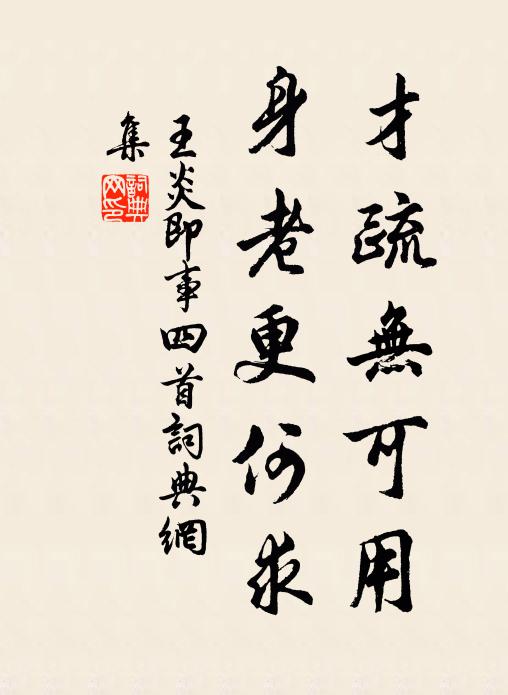 才疏無可用
身老更何求
王炎即事四首詞典網
集
詞典
网印